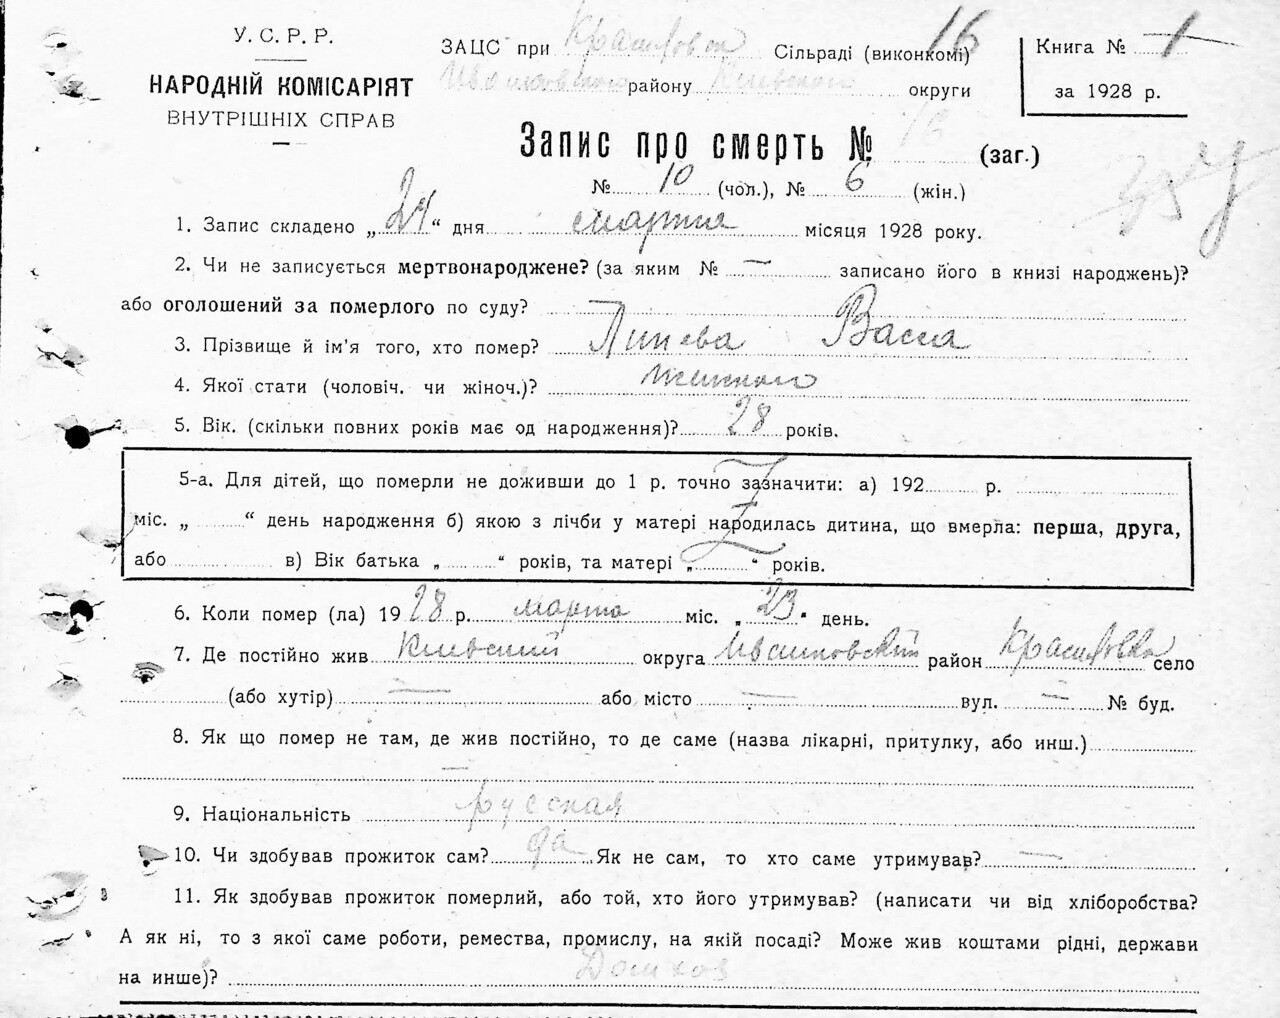 У. С. Р. Р.
НАРОДНІЙ КОМІСАРІЯТ
ВНУТРІШНІХ СПРАВ
ЗАЦС при Красиловск Сільраді (виконкомі) 16
району Киевского округи
Книга № 1
за 1928 р.
Запис про смерть № 16 (заг.)
№ 10 (чол.), № 6 (жін.)
1. Запис складено „24“ дня марта місяця 1928 року.
2. Чи не записується мертвонароджене? (за яким № — записано його в книзі народжень)?
або оголошений за померлого по суду? —
3. Прізвище й ім'я того, хто помер? Липева Васса
4. Якої стати (чоловіч. чи жіноч.)? женского
5. Вік. (скільки повних років має од народження)? 28 років.
5-а. Для дітей, що померли не доживши до 1 р. точно зазначити: а) 192 р.
міс. „ “ день народження б) якою з лічби у матері народилась дитина, що вмерла: перша, друга,
або в) Вік батька „ “ років, та матері „ “ років.
6. Коли помер (ла) 1928 р. марта міс. „23“ день.
7. Де постійно жив Киевский округа район Красиловка село
(або хутір) — або місто — вул. — № буд.
8. Як що помер не там, де жив постійно, то де саме (назва лікарні, притулку, або инш.)
—
9. Національність русская
10. Чи здобував прожиток сам? да Як не сам, то хто саме утримував? —
11. Як здобував прожиток померлий, або той, хто його утримував? (написати чи від хліборобства?
А як ні, то з якої саме роботи, ремества, промислу, на якій посаді? Може жив коштами рідні, держави
на инше)?